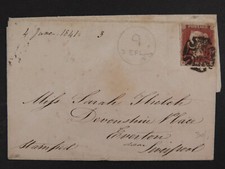 4 June 1841 3
Miss Sarah
Devonshire Place
Everton
Stampd Liverpool